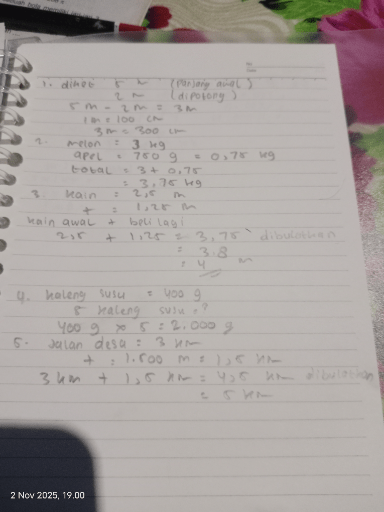 1. diket 5 m (panjang awal)
2 m (dipotong)
5 m - 2 m = 3m
1m = 100 cm
3m = 300 cm
2. melon = 3 kg
apel = 750 g = 0,75 kg
total = 3 + 0,75
= 3,75 kg
3. kain = 2,5 m
+ = 1,25 m
kain awal + beli lagi
2,5 + 1,25 = 3,75 dibulatkan
= 3.8
= 4 m
4. kaleng susu = 400 g
5 kaleng susu = ?
400 g x 5 = 2.000 g
5. Jalan desa = 3 km
+ = 1.500 m = 1,5 km
3 km + 1,5 km = 4,5 km dibulatkan
= 5 km
2 Nov 2025, 19.00